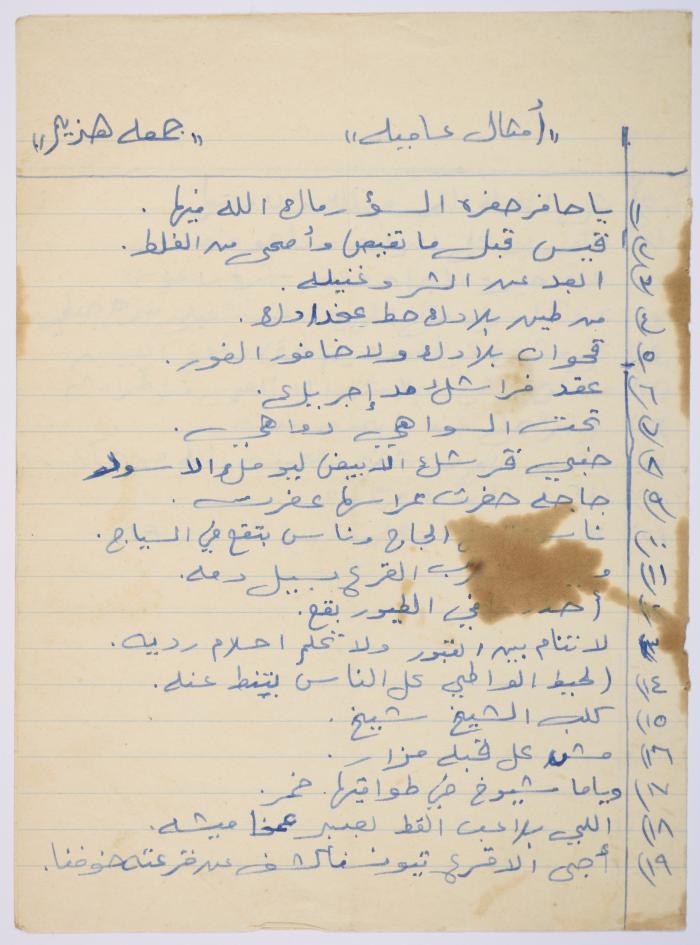 "أمثال عاميه" "جمعه هنديه"
١) ياحافر حفرة السؤ رماك الله فيها.
٢) قيس قبل ما تغيص وأصحى من الغلط.
٣) ابعد عن الشر وغنيله.
٤) من طين بلادك حط عخدادك.
٥) قحوان بلادك ولا خافور الغور.
٦) عقد فراشك مد إجريك.
٧) تحت السواهي دواهي.
٨) خبي قرشك الأبيض ليومك الاسود
٩) جاجة حفرت عراسها عفرت.
١٠) ناس الحاج وناس بتقع في السياج.
١١) القرع بسيل دمه.
١٢) في الطيور بقع.
١٣) لا تنام بين القبور ولا تحلم احلام رديه.
١٤) الحيط الواطي كل الناس بتنط عنه.
١٥) كلب الشيخ شيخ.
١٦) مش كل قبه مزار.
١٧) وياما شيوخ في طواقيها خمر.
١٨) اللي بلاعب القط لصبر عخراميشه.
١٩) أجى الاقرع تيونسنا كشف عن قرعته خوفنا.